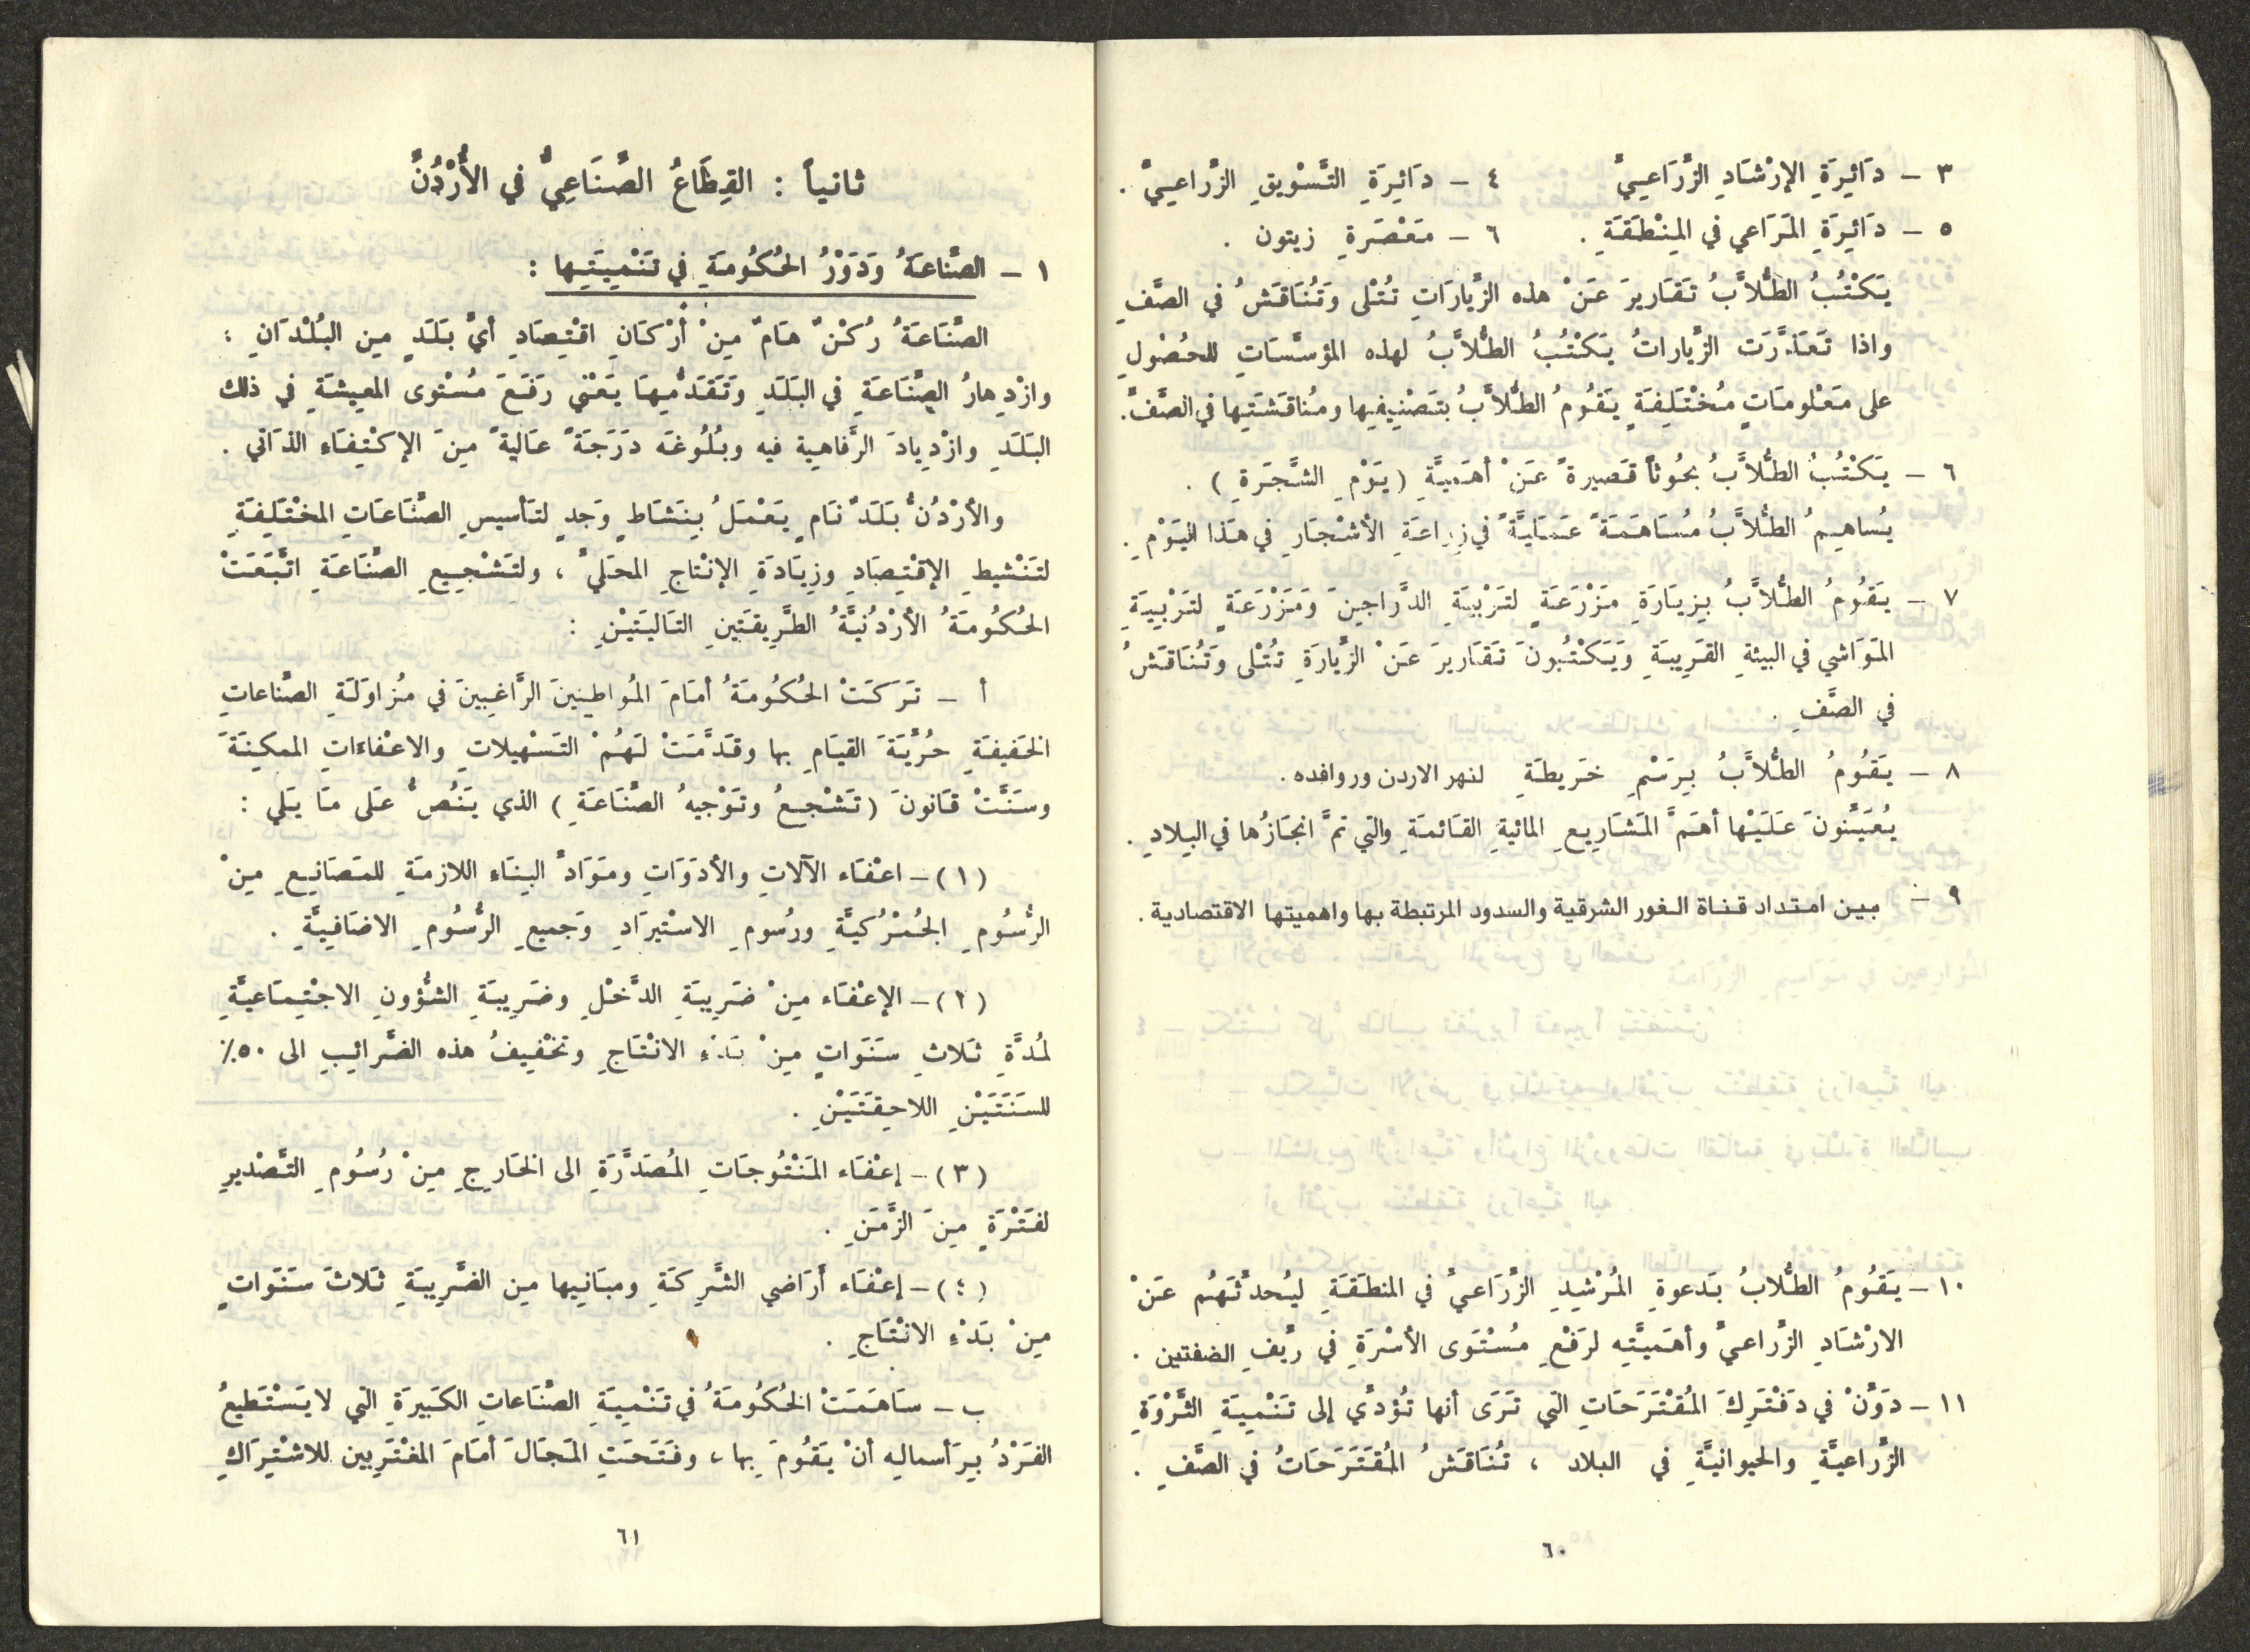 ٣ – دَائِرَةِ الإرْشَادِ الزِّرَاعِيِّ ٤ – دَائِرَةِ التَّسْوِيقِ الزِّراعيِّ .
٥ – دَائِرَةِ المَرَاعي في المِنْطَقَةِ . ٦ – مَعْصَرةِ زيتون .
يَكْتُبُ الطُّلاَّبُ تَقَاريرَ عَنْ هذه الزِّيارَاتِ تُتْلى وَتُنَاقَشُ في الصَّفِ
واذا تَعَذَّرَت الزِّياراتُ يَكْتُبُ الطُّلاَّبُ لهذه المؤسَّسَاتِ للحُصُولِ
على مَعْلومَاتٍ مُخْتَلِفَةٍ يَقُومُ الطُّلاَّبُ بتَصْنِيفِها ومُناقَشَتِها في الصَّفِّ.
٦ – يَكْتُبُ الطُّلاَّبُ بحُوثاً قَصيرةً عَنْ أهَمِيَّةِ (يَوْمِ الشَّجَرةِ ) .
يُساهِمُ الطُّلاَّبُ مُسَاهَمَةً عَمَليَّةً في زِراعَةِ الأشْجَارِ في هَذا اليَوْمِ .
٧ – يَقُومُ الطُّلاَّبُ بِزِيَارَةِ مَزْرَعَةٍ لتَرْبيَةِ الدَّراجِنَ وَمَزْرَعَةٍ لتَرْبِيَةِ
المَوَاشي في البيئةِ القَرِيبَةِ وَيَكْتُبُونَ تَقَاريرَ عَنْ الزِّيارَةِ تُتْلى وَتُنَاقَشُ
في الصَّفِ .
٨ – يَقُومُ الطُّلاَّبُ بِرَسْمِ خَريطَةِ لنهر الاردن وروافده .
يُعَيِّنُونَ عَلَيْها أهَمَّ المَشَارِيعِ المائيةِ القَائمَةِ والتي تمَّ انجَازُها في البِلادِ .
٩ – بين امتداد قناة الغور الشرقية والسدود المرتبطة بها واهميتها الاقتصادية .
١٠ – يَقُومُ الطُّلابُ بَدعوةِ المُرْشِدِ الزِّرَاعيِّ في المنطَقَةِ ليُحدِّثَهُم عَنْ
الارْشَادِ الزِّراعيِّ وأهَميَّتِه لرَفْعِ مُسْتَوَى الأسْرَةِ في رِيفِ الضفتين .
١١ – دَوِّنْ في دَفْتَرِكَ المُقْتَرَحَاتِ التي تَرَى أنها تُؤدِّي إلى تَنْمِيَةِ الثَّرْوَةِ
الزِّراعيَّةِ والحيوانيَّةِ في البلاد ، تُنَاقَشُ المُقْتَرَحَاتُ في الصَّفِ .
٦٠
ثانياً : القِطَاعُ الصِّنَاعِيُّ في الأُرْدُنِّ
١ – الصِّناعَةُ وَدَوْرُ الحُكُومَةِ في تَنْمِيَتِها :
الصِّنَاعَةُ رُكْنٌ هَامٌ مِنْ أرْكَانِ اقْتِصَادِ أيِّ بَلَدٍ مِن البُلْدَانِ ؛
وازْدِهارُ الصِّنَاعَةِ في البَلَدِ وَتَقَدُّمِهَا يَعْني رَفَعَ مُسْتوى المعِيشَةِ في ذلك
البَلَدِ وازْدِيادَ الرَّفاهِية فيه وبُلُوغَه دَرَجَةً عَاليةً مِنَ الإكْتِفَاءِ الذَاتي .
والأرْدُنُّ بَلَدٌ نَامٍ يَعْمَلُ بِنَشَاطٍ وَجَدٍ لتَأسيسِ الصِّنَاعَاتِ المخْتَلِفَةِ
لتَنْشيطِ الإقْتِصَادِ وزِيَادَةِ الإنْتاجِ المحَلِيِّ ، ولتَشْجِيعِ الصِّنَاعَةِ اتَّبَعَتْ
الحُكُومَةُ الأرْدُنيَّةُ الطَّرِيقَتَينِ التَاليَتَيْنِ :
أ – تَرَكَتْ الحُكُومَةُ أمَامَ المُواطِنينَ الرَّاغِبينَ في مُزاوَلَةِ الصِّناعاتِ
الخَفيفَةِ حُرِّيَّةَ القيَامِ بها وقَدَّمَتْ لَهُمْ التَسْهيلاتِ والاعْفاءَاتِ الممكِنَةَ
وسَنَّتْ قَانونَ (تَشْجعُ وتَوْجيهُ الصِّنَاعَةِ ) الذي يَنُصُّ عَلَى مَا يَلي :
(١) – اعْفَاء الآلاتِ والأدَوَاتِ ومَوَادِّ البِنَاءِ اللازمَةِ للمَصَانِعِ مِنْ
الرُّسُومِ الجُمْرُكيَّةِ ورُسُومِ الاسْتيرَادِ وَجَميعِ الرُّسُومِ الاضَافِيَّةِ .
(٢) – الإعْفَاء مِنْ ضَرِيبَةِ الدَّخْلِ وضَرِيبَةِ الشُّؤونِ الاجْتِمَاعيَّةِ
لمُدَّةِ ثَلاثِ سَنَوَاتٍ مِنْ بَدْءِ الانْتَاجِ وتخْفِيفُ هذه الضَّرائِبِ الى ٥٠٪
للسَنَتَيْنِ اللاحِقَتَيْنِ .
(٣) – إعْفَاء المَنْتُوجَاتِ المُصَدَّرَةِ الى الخَارِجِ مِنْ رُسُومِ التَّصْديرِ
لفَتْرَةٍ مِنَ الزَّمَنِ .
(٤) – إعْفَاء أَرَاضي الشَّرِكَةِ ومبَانِيها مِن الضَّرِيبَةِ ثَلاثَ سَنَوَاتٍ
مِنْ بَدْءِ الانْتَاجِ .
ب – سَاهَمَتْ الحُكُومَةُ في تَنْمِيَةِ الصِّنَاعاتِ الكَبيرَةِ التي لا يَسْتَطيعُ
الفَرْدُ بِرَأسمالِه أنْ يَقُومَ بها ، وفَتَحَتِ المَجَالَ أمَامَ المغْتَرِبين للاشْتِرَاكِ
٦١